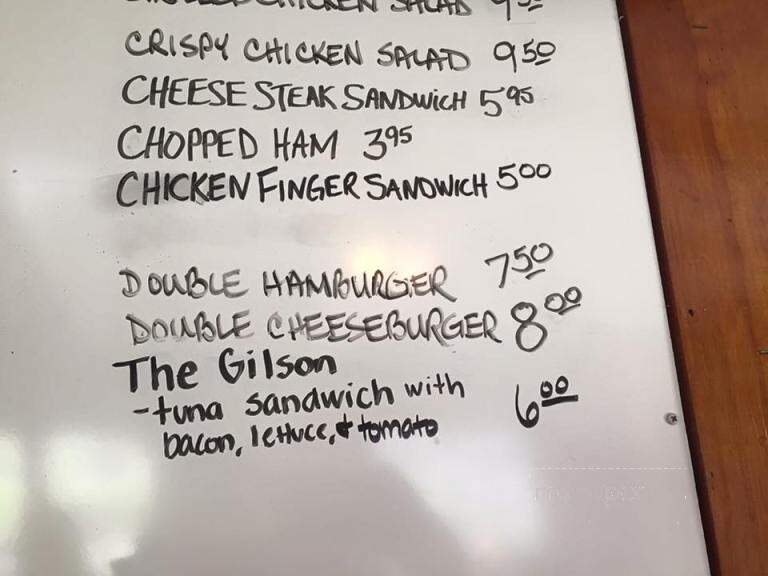 CHICKEN SALAD
CRISPY CHICKEN SALAD 9 50
CHEESE STEAK SANDWICH 5 95
CHOPPED HAM 3 95
CHICKEN FINGER SANDWICH 5 00
DOUBLE HAMBURGER 7 50
DOUBLE CHEESEBURGER 8 00
The Gilson
-tuna sandwich with 6 00
bacon, lettuce, & tomato